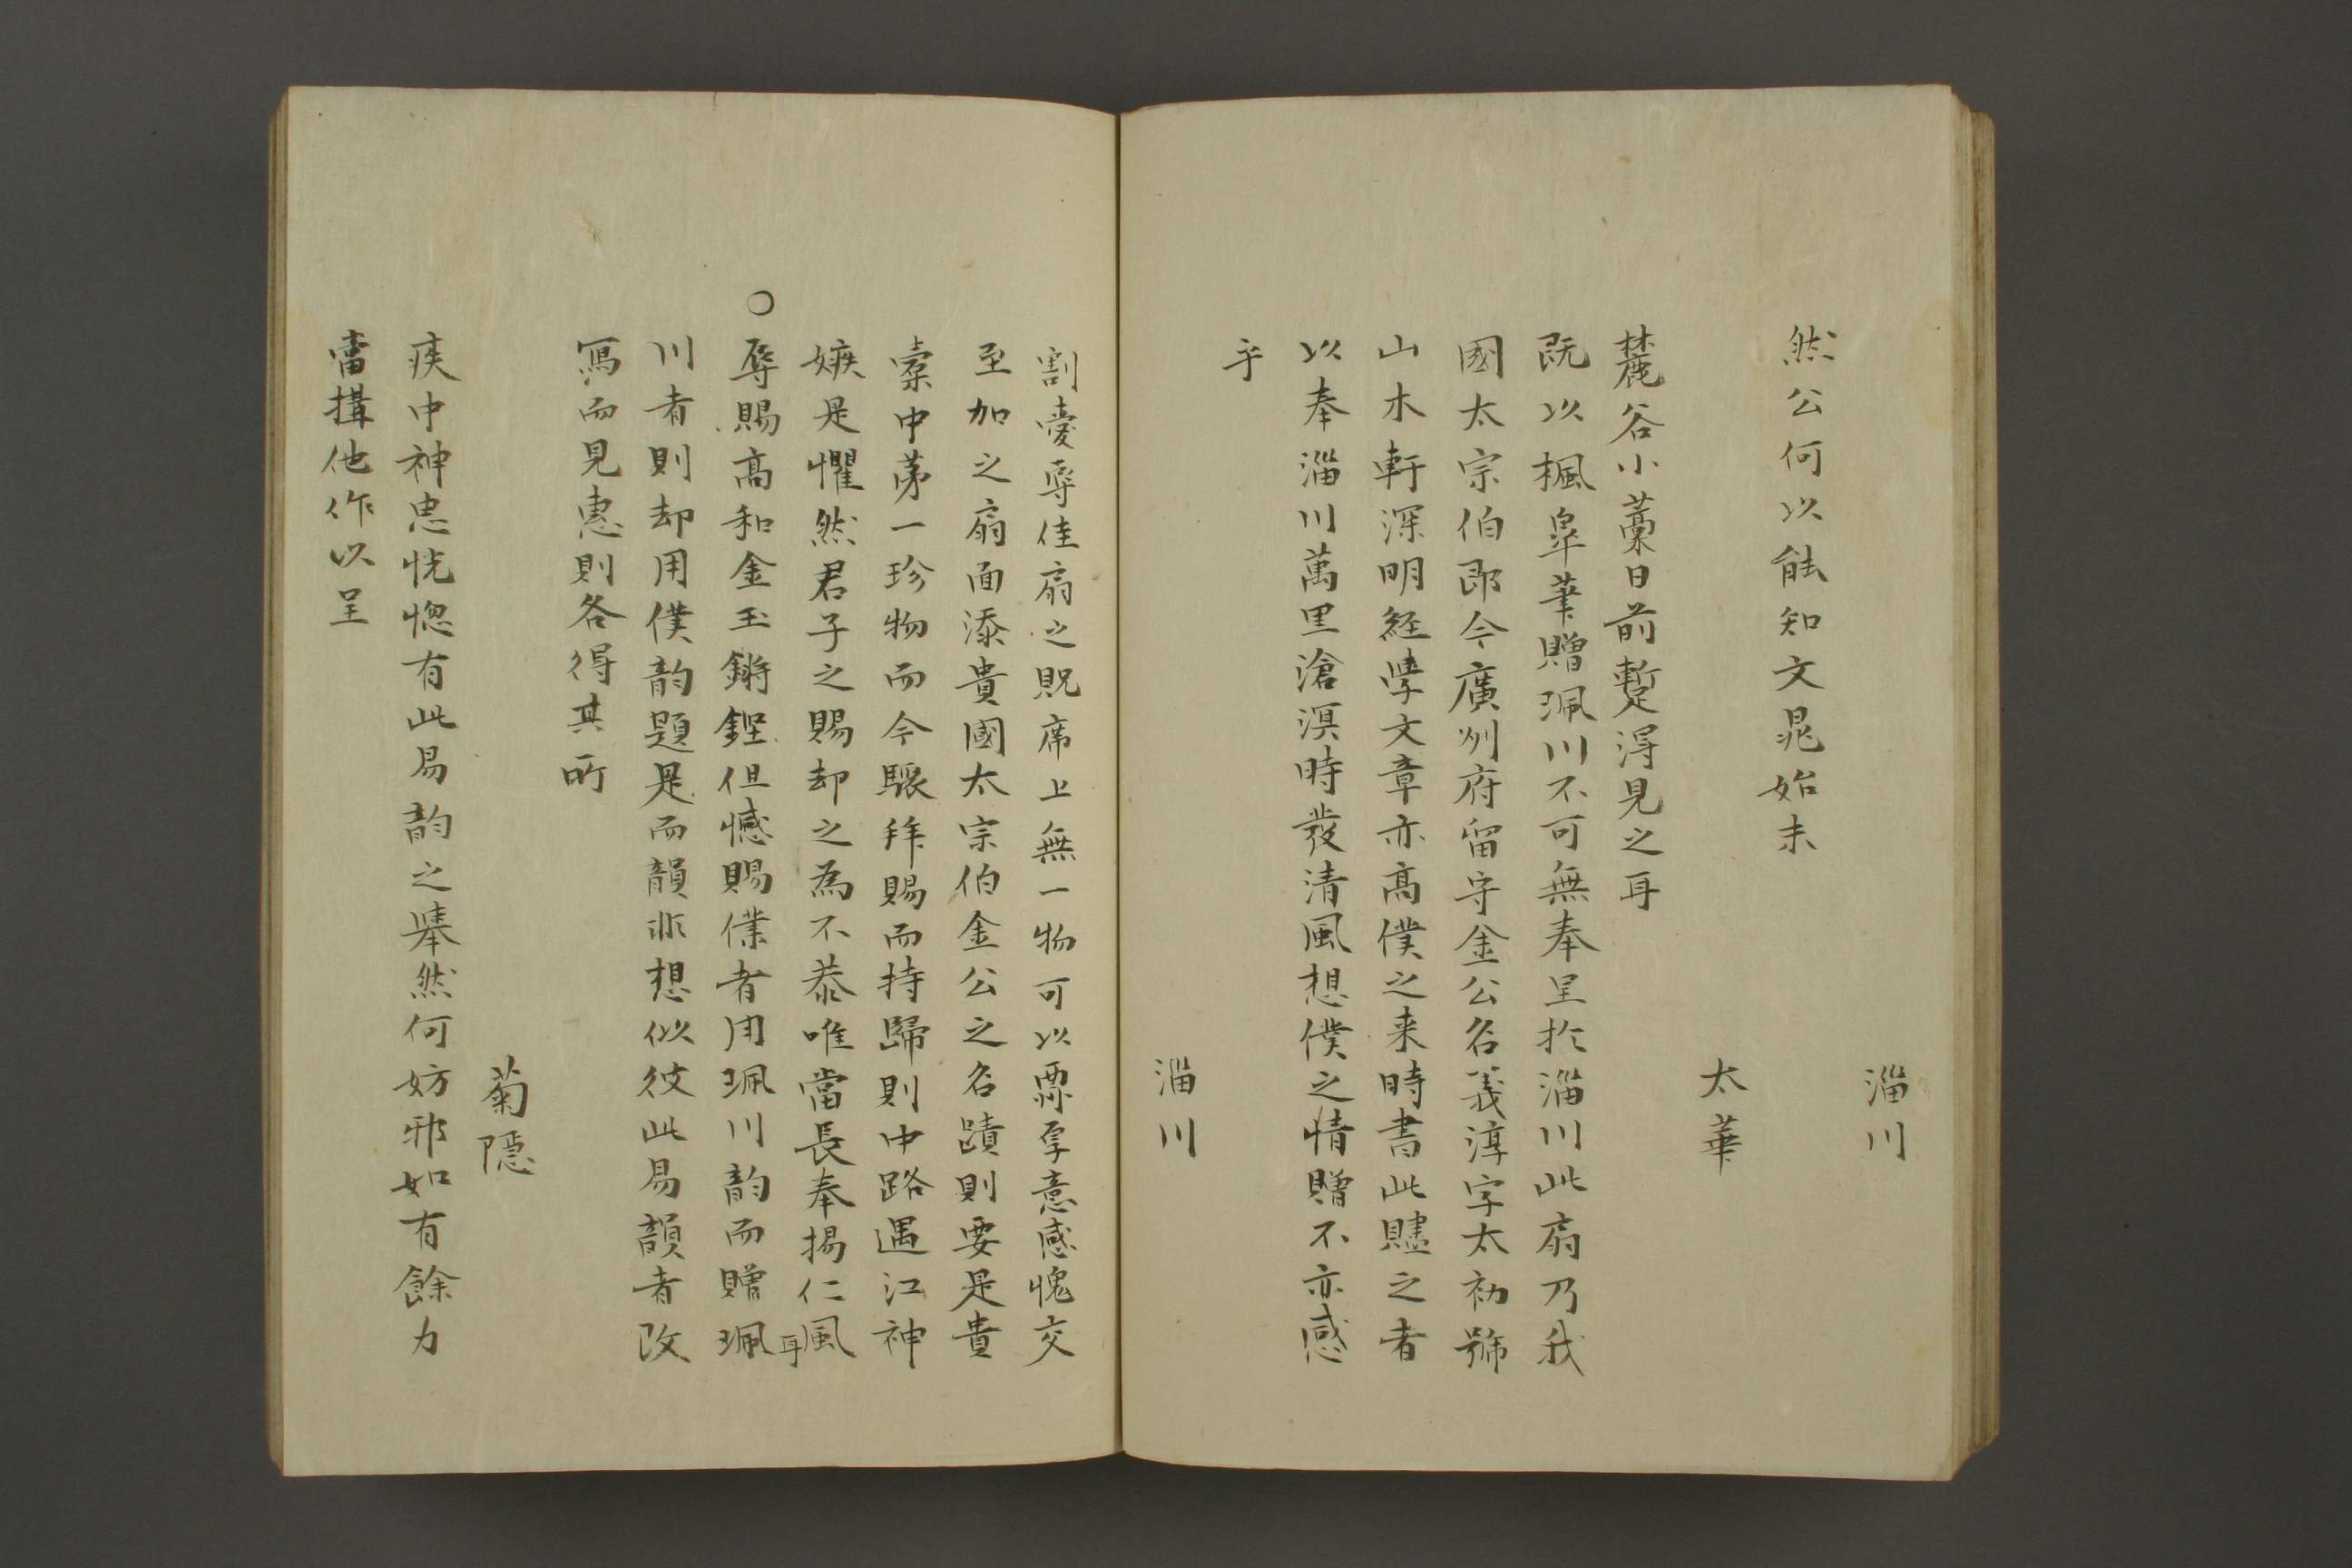 淄川
然公何以能知文晁始末
太華
麓谷小藁日前暫淂見之耳
既以楓皐筆贈珮川不可無奉呈於淄川此扇乃我
國太宗伯郎今廣州府留守金公名羲淳字太初號
山木軒深明經學文章亦高僕之来時書此贐之者
以奉淄川萬里滄溟時發清風想僕之情贈不亦感
乎
淄川
割愛辱佳扇之貺席上無一物可以酬厚意感愧交
至加之扇面添貴國太宗伯金公之名蹟則要是貴
橐中苐一珍物而今驟拜賜而持歸則中路遇江神
嫉是懼然君子之賜却之為不恭唯當長奉揚仁風耳
○辱賜高和金玉鏘鏗但憾賜僕者用珮川韵而贈珮
川者則却用僕韵題是而韻非想似彼此易韻者改
寫而見惠則各得其所
菊隱
疾中神思恍惚有此易韵之舉然何妨邪如有餘力
當搆他作以呈